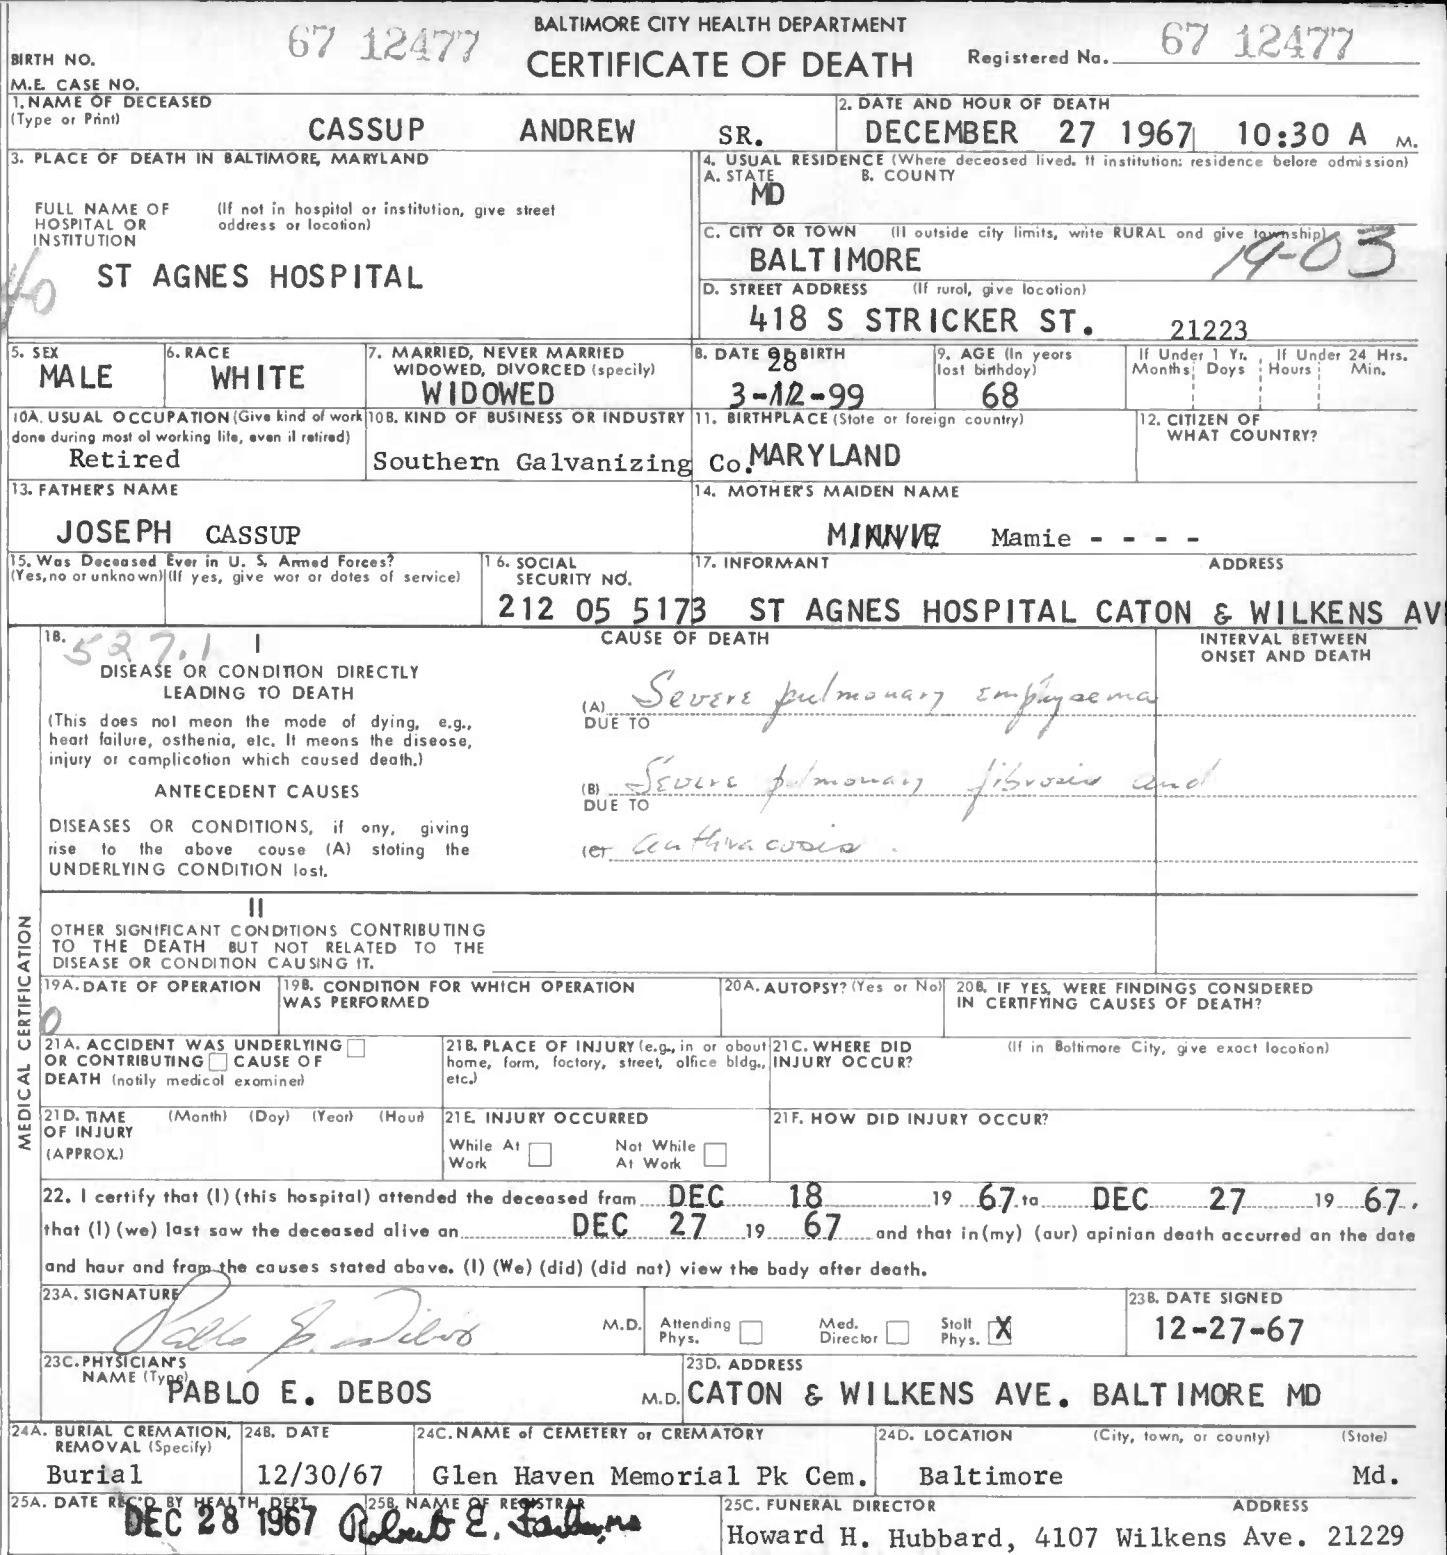 BALTIMORE CITY HEALTH DEPARTMENT
67 12477
CERTIFICATE OF DEATH
Registered No. 67 12477
BIRTH NO.
M.E. CASE NO.
1. NAME OF DECEASED
(Type or Print)
CASSUP ANDREW SR.
2. DATE AND HOUR OF DEATH
DECEMBER 27 1967 10:30 A M.
3. PLACE OF DEATH IN BALTIMORE, MARYLAND
FULL NAME OF HOSPITAL OR INSTITUTION
(If not in hospital or institution, give street address or location)
40
ST AGNES HOSPITAL
4. USUAL RESIDENCE (Where deceased lived. If institution: residence before admission)
A. STATE B. COUNTY
MD
C. CITY OR TOWN (If outside city limits, write RURAL and give township)
BALTIMORE 19-03
D. STREET ADDRESS (If rural, give location)
418 S STRICKER ST. 21223
5. SEX
MALE
6. RACE
WHITE
7. MARRIED, NEVER MARRIED
WIDOWED, DIVORCED (specify)
WIDOWED
8. DATE OF BIRTH
28
3-12-99
9. AGE (In years
last birthday)
68
If Under 1 Yr. If Under 24 Hrs.
Months Days Hours Min.
10A. USUAL OCCUPATION (Give kind of work
done during most of working life, even if retired)
Retired
10B. KIND OF BUSINESS OR INDUSTRY
Southern Galvanizing Co.
11. BIRTHPLACE (State or foreign country)
MARYLAND
12. CITIZEN OF
WHAT COUNTRY?
13. FATHER'S NAME
JOSEPH CASSUP
14. MOTHER'S MAIDEN NAME
MINNIE Mamie - - - -
15. Was Deceased Ever in U. S. Armed Forces?
(Yes, no or unknown) (If yes, give war or dates of service)
16. SOCIAL
SECURITY NO.
212 05 5173
17. INFORMANT ADDRESS
ST AGNES HOSPITAL CATON & WILKENS AV
MEDICAL CERTIFICATION
18. 527.1
I
DISEASE OR CONDITION DIRECTLY
LEADING TO DEATH
(This does not mean the mode of dying, e.g.,
heart failure, asthenia, etc. It means the disease,
injury or complication which caused death.)
ANTECEDENT CAUSES
DISEASES OR CONDITIONS, if any, giving
rise to the above cause (A) stating the
UNDERLYING CONDITION last.
CAUSE OF DEATH
INTERVAL BETWEEN
ONSET AND DEATH
(A) Severe pulmonary emphysema
DUE TO
(B) Severe pulmonary fibrosis and
DUE TO
(C) anthracosis.
II
OTHER SIGNIFICANT CONDITIONS CONTRIBUTING
TO THE DEATH BUT NOT RELATED TO THE
DISEASE OR CONDITION CAUSING IT.
19A. DATE OF OPERATION
0
19B. CONDITION FOR WHICH OPERATION
WAS PERFORMED
20A. AUTOPSY? (Yes or No)
20B. IF YES, WERE FINDINGS CONSIDERED
IN CERTIFYING CAUSES OF DEATH?
21A. ACCIDENT WAS UNDERLYING
OR CONTRIBUTING CAUSE OF
DEATH (notify medical examiner)
21B. PLACE OF INJURY (e.g., in or about
home, farm, factory, street, office bldg.,
etc.)
21C. WHERE DID
INJURY OCCUR?
(If in Baltimore City, give exact location)
21D. TIME (Month) (Day) (Year) (Hour)
OF INJURY
(APPROX.)
21E. INJURY OCCURRED
While At
Work
Not While
At Work
21F. HOW DID INJURY OCCUR?
22. I certify that (I) (this hospital) attended the deceased from DEC 18 19 67 to DEC 27 19 67.
that (I) (we) last saw the deceased alive on DEC 27 19 67 and that in (my) (our) opinion death occurred on the date
and hour and from the causes stated above. (I) (We) (did) (did not) view the body after death.
23A. SIGNATURE
Pablo E. Debos M.D.
Attending
Phys.
Med.
Director
Staff
Phys. X
23B. DATE SIGNED
12-27-67
23C. PHYSICIAN'S
NAME (Type)
PABLO E. DEBOS M.D.
23D. ADDRESS
CATON & WILKENS AVE. BALTIMORE MD
24A. BURIAL CREMATION,
REMOVAL (Specify)
Burial
24B. DATE
12/30/67
24C. NAME of CEMETERY or CREMATORY
Glen Haven Memorial Pk Cem.
24D. LOCATION (City, town, or county) (State)
Baltimore Md.
25A. DATE REC'D BY HEALTH DEPT.
DEC 28 1967
25B. NAME OF REGISTRAR
Robert E.
25C. FUNERAL DIRECTOR ADDRESS
Howard H. Hubbard, 4107 Wilkens Ave. 21229